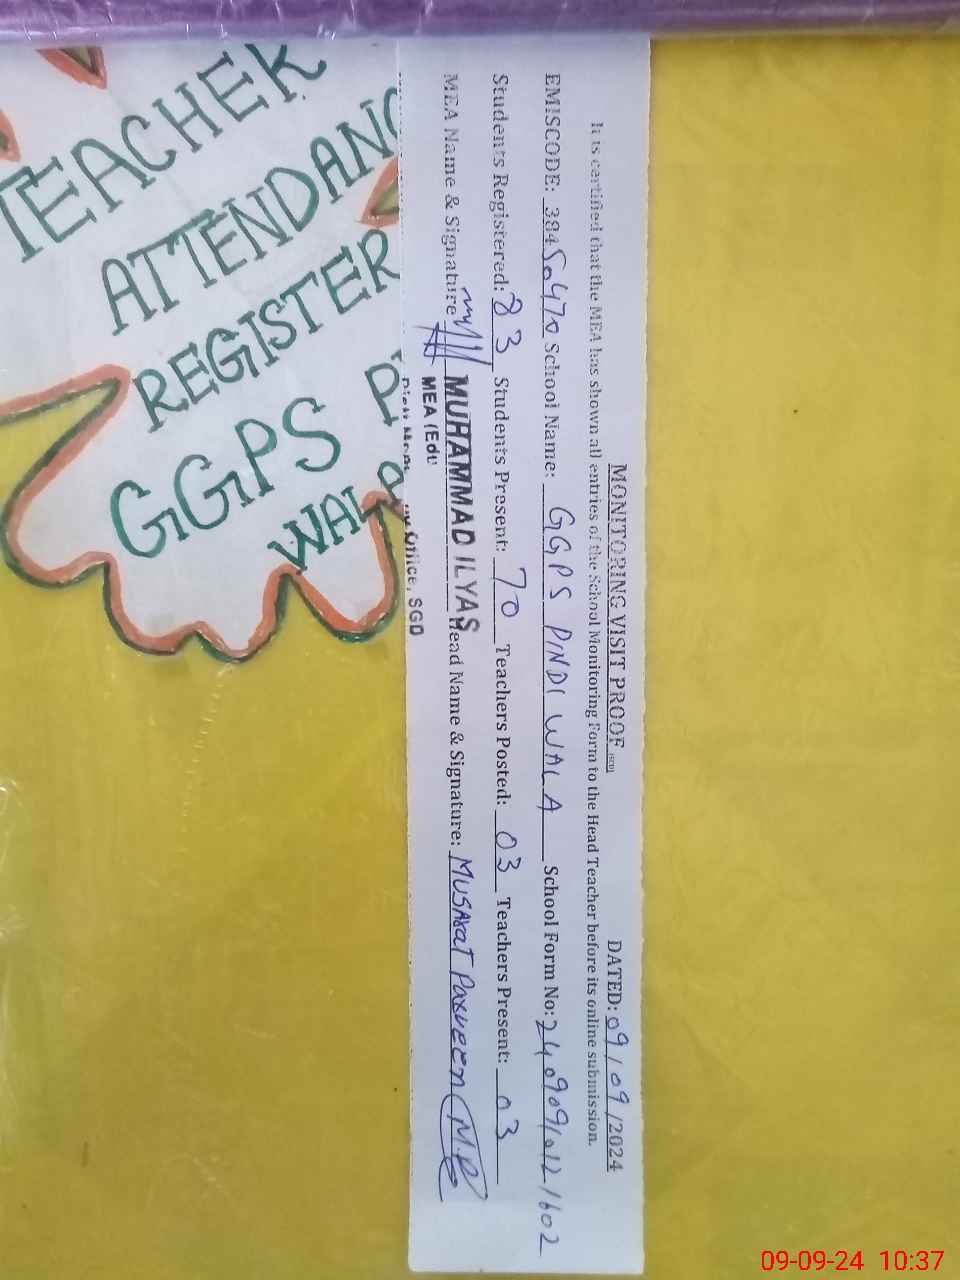 TEACHER
ATTENDANC
REGISTER
GGPS P
WALA
MONITORING VISIT PROOF (SED) DATED: 09/09/2024
It is certified that the MEA has shown all entries of the School Monitoring Form to the Head Teacher before its online submission.
EMISCODE: 38450470 School Name: GGPS PINDI WALA School Form No: 240909/012/602
Students Registered: 83 Students Present: 70 Teachers Posted: 03 Teachers Present: 03
MEA Name & Signature MUHAMMAD ILYAS Head Name & Signature: Musarat Parveen
MEA (Edu
Office, SGD
09-09-24 10:37